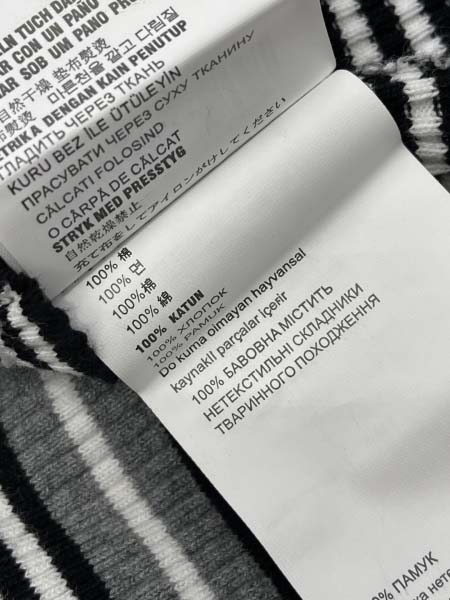 ELN TUCH DA
AR CON UN PAÑO
AR SOB UM PANO PRO
自然干燥 垫布熨烫 마른천을 깔고 다림질
TRIKA DENGAN KAIN PENUTUP
ГЛАДИТЬ ЧЕРЕЗ ТКАНЬ
KURU BEZ İLE ÜTÜLEYİN
ПРАСУВАТИ ЧЕРЕЗ СУХУ ТКАНИНУ
CĂLCAŢI FOLOSIND
O CÂRPĂ DE CĂLCAT
STRYK MED PRESSTYG
自然乾燥禁止
充て布をしてアイロンがけしてください
100% 棉
100% 면
100% 棉
100% 綿
100% KATUN
100% ХЛОПОК
100% PAMUK
Do kuma olmayan hayvansal
kaynaklı parçalar içerir
100% БАВОВНА МІСТИТЬ
НЕТЕКСТИЛЬНІ СКЛАДНИКИ
ТВАРИННОГО ПОХОДЖЕННЯ
% ПАМУК
жа нете